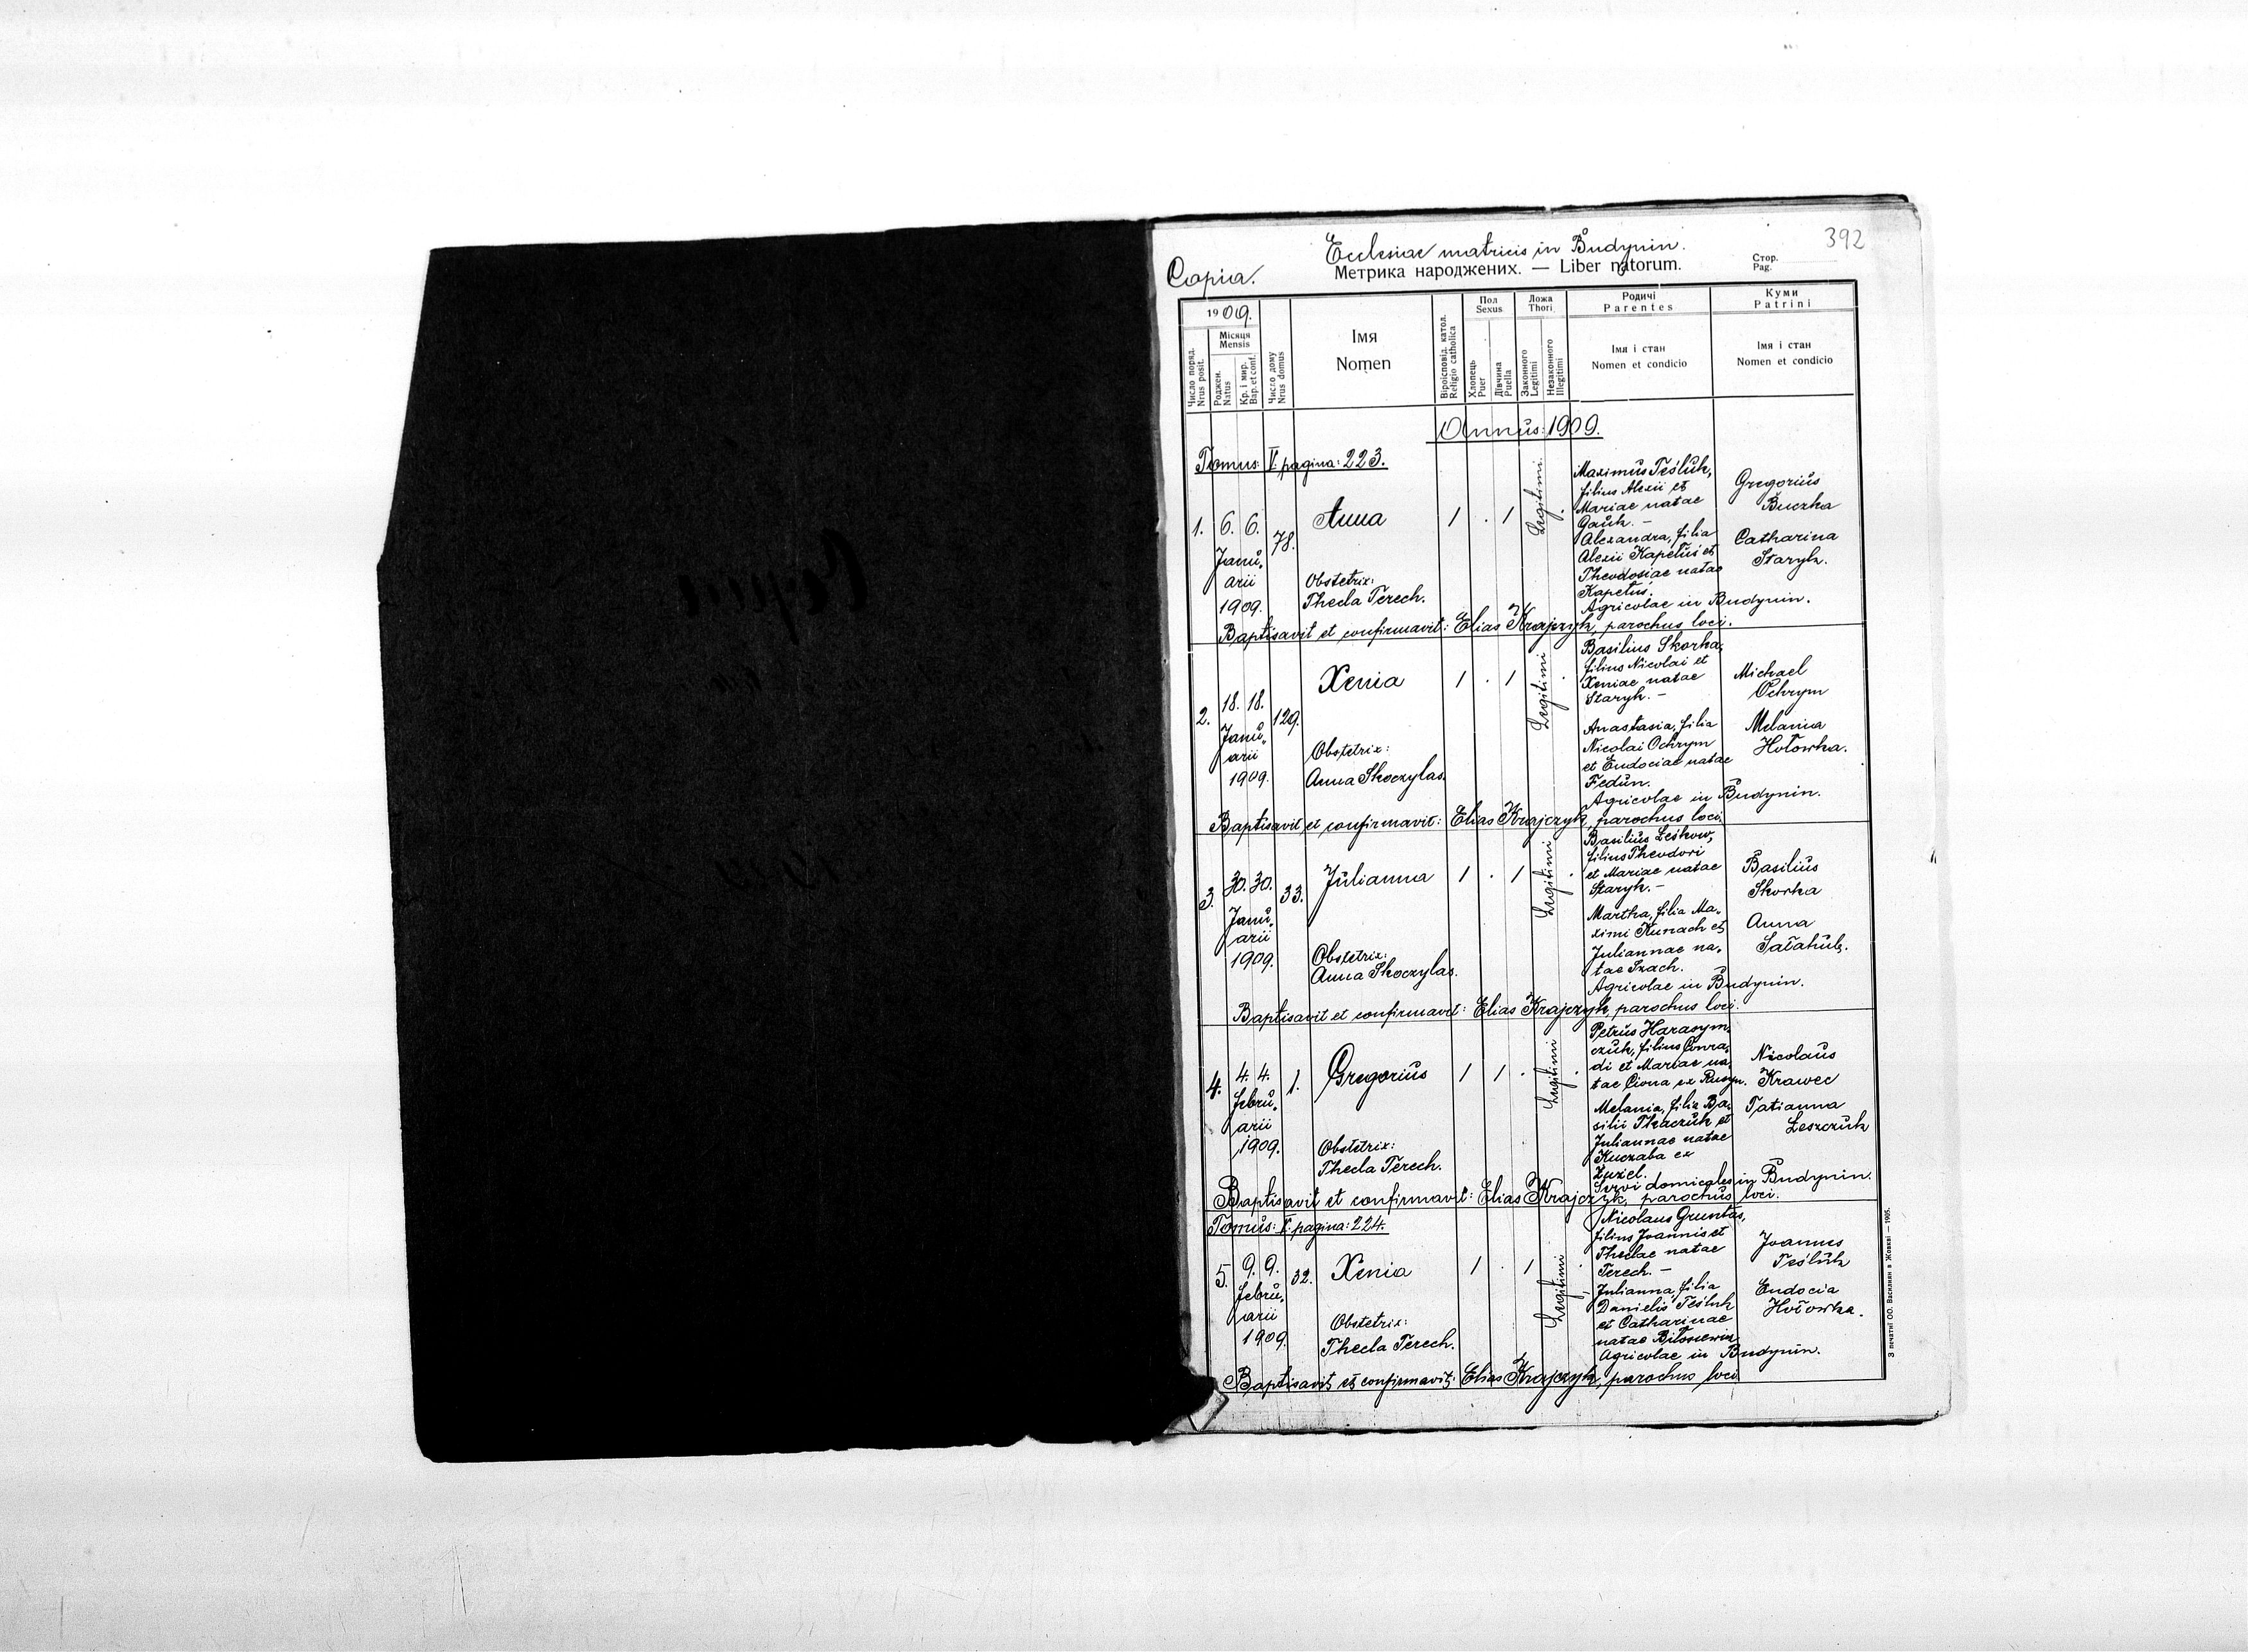 392
Ecclesiae matricis in Budynin.
Copia.
Метрика народжених. — Liber natorum.
Стор.
Pag.
1909.
Місяця
Mensis
Число поряд.
Nrus posit.
Роджен.
Natus
Кр. і мир.
Bap. et conf.
Число дому
Nrus domus
Імя
Nomen
Віроісповід. катол.
Religio catholica
Пол
Sexus
Хлопець
Puer
Дївчина
Puella
Ложа
Thori
Законного
Legitimi
Незаконного
Illegitimi
Родичі
Parentes
Імя і стан
Nomen et condicio
Куми
Patrini
Імя і стан
Nomen et condicio
Annus: 1909.
Tomus: V. pagina: 223.
1. 6. 6. Janu„
arii
1909.
78.
Anna
Obstetrix:
Thecla Terech.
1 . 1 Legitimi .
Maximus Teśluk,
filius Alexii et
Mariae natae
Gauk. –
Alexandra, filia
Alexii Kapeluś et
Theodosiae natae
Kapeluś.
Agricolae in Budynin.
Gregorius
Buczka
Catharina
Staryk.
Baptisavit et confirmavit: Elias Krajczyk, parochus loci.
2. 18. 18. Janu„
arii
1909.
129.
Xenia
Obstetrix:
Anna Skoczylas.
1 . 1 Legitimi .
Basilius Skorka,
filius Nicolai et
Xeniae natae
Staryk. –
Anastasia, filia
Nicolai Ochrym
et Eudociae natae
Fedun.
Agricolae in Budynin.
Michael
Ochrym
Melania
Hołowka.
Baptisavit et confirmavit: Elias Krajczyk, parochus loci.
3. 30. 30. Janu„
arii
1909.
33.
Julianna
Obstetrix:
Anna Skoczylas.
1 . 1 Legitimi .
Basilius Leśkow,
filius Theodori
et Mariae natae
Staryk. –
Martha, filia Ma„
ximi Kunach et
Juliannae na„
tae Szach.
Agricolae in Budynin.
Basilius
Skorka
Anna
Sałahub.
Baptisavit et confirmavit: Elias Krajczyk, parochus loci.
4. 4. 4. Febru„
arii
1909.
1.
Gregorius
Obstetrix:
Thecla Terech.
1 1 . Legitimi .
Petrus Harasym„
czuk, filius Conra„
di et Mariae na„
tae Ciona ex Rusyn.
Melania, filia Ba„
silii Tkaczuk et
Juliannae natae
Kuczaba ex
Żużel.
Servi domicales in Budynin.
Nicolaus
Krawec
Tatianna
Leszczuk
Baptisavit et confirmavit: Elias Krajczyk, parochus loci.
Tomus: V. pagina: 224.
5. 9. 9. Febru„
arii
1909.
32.
Xenia
Obstetrix:
Thecla Terech.
1 . 1 Legitimi .
Nicolaus Gruntas,
filius Joannis et
Theclae natae
Terech. –
Julianna, filia
Danielis Teśluk
et Catharinae
natae
Agricolae in Budynin.
Joannes
Teśluk
Eudocia
Hołowka.
Baptisavit et confirmavit: Elias Krajczyk, parochus loci
З печатні ОО. Василиян в Жовкві — 1905.